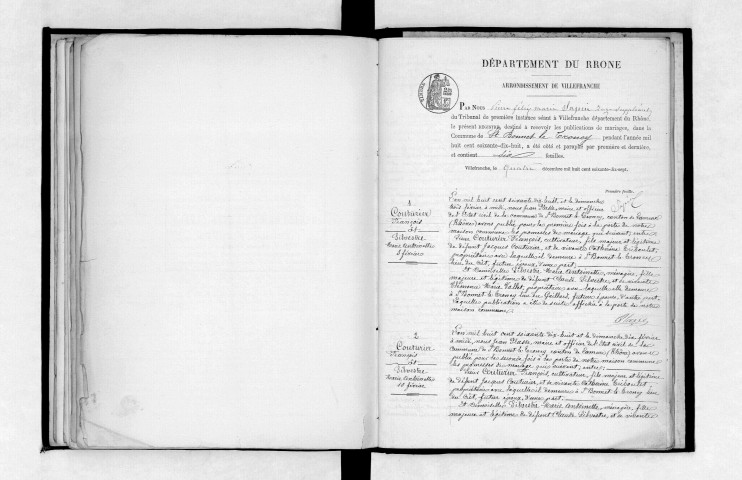 DÉPARTEMENT DU RHONE
ARRONDISSEMENT DE VILLEFRANCHE
PAR NOUS Pierre félix marie
du Tribunal de première instance séant à Villefranche département du Rhône,
le présent REGISTRE, destiné à recevoir les publications de mariages, dans la
Commune de St Bonnet le Troncy pendant l'année mil
huit cent soixante-dix-huit, a été coté et paraphé par première et dernière,
et contient dix feuilles.
Villefranche, le quatre décembre mil huit cent soixante-dix-sept.
Première feuille.
1
Couturier
François
et
Silvestre
Marie Antoinette
3 février
L'an mil huit cent soixante dix huit et le dimanche
trois février à midi, nous Jean Plasse, maire et officier
de l'Etat civil de la commune de St Bonnet le Troncy, canton de Lamure
(Rhône) avons publié pour la première fois à la porte de notre
maison commune les promesses de mariage qui suivent, entre:
Sieur Couturier François, cultivateur, fils majeur et légitime
de défunt Jacques Couturier, et de vivante Catherine
propriétaire avec laquelle il demeure à St Bonnet le Troncy
lieu du futur époux, d'une part;
Et Demoiselle Silvestre Marie Antoinette, ménagère, fille
majeure et légitime de défunt Claude Silvestre, et de vivante
Marie Pallet, propriétaire avec laquelle elle demeure
à St Bonnet le Troncy lieu du future épouse, d'autre part.
Lesquelles publications a été de suite affichée à la porte de notre
maison commune.
Plasse
2
Couturier
François
et
Silvestre
Marie Antoinette
10 février
L'an mil huit cent soixante dix huit et le dimanche dix février
à midi, nous Jean Plasse, maire et officier de l'Etat civil de la
commune de St Bonnet le Troncy canton de Lamure (Rhône) avons
publié pour la seconde fois à la porte de notre maison commune
les promesses de mariage qui suivent, entre:
Sieur Couturier François, cultivateur, fils majeur et légitime
de défunt Jacques Couturier, et de vivante Catherine
propriétaire avec laquelle il demeure à St Bonnet le Troncy lieu
du futur époux, d'une part:
Et Demoiselle Silvestre Marie Antoinette, ménagère, fille
majeure et légitime de défunt Claude Silvestre, et de vivante